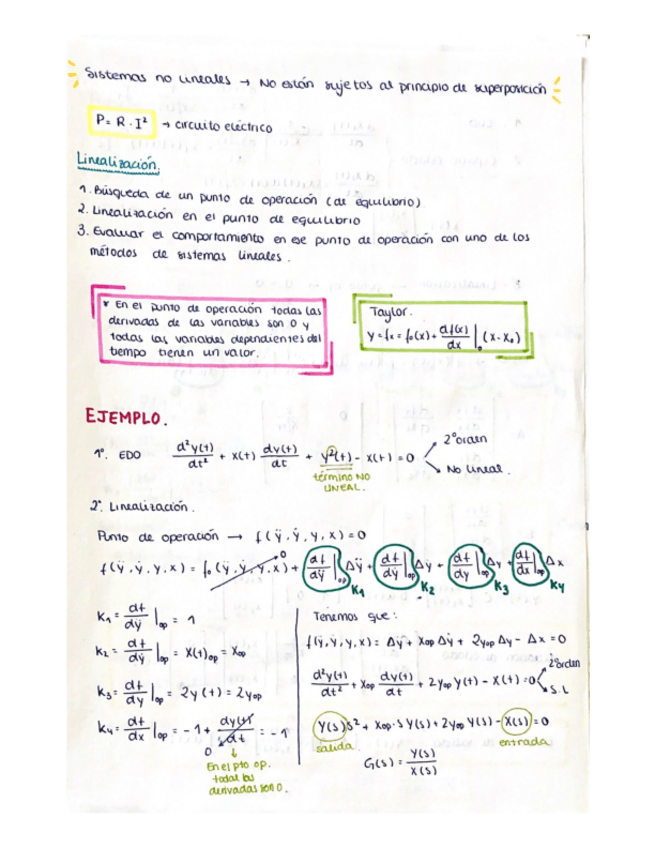 Sistemas no lineales → No están sujetos al principio de superposición
P = R · I² → circuito eléctrico
Linealización.
1. Búsqueda de un punto de operación (de equilibrio)
2. Linealización en el punto de equilibrio
3. Evaluar el comportamiento en ese punto de operación con uno de los
métodos de sistemas lineales.
* En el punto de operación todas las
derivadas de las variables son 0 y
todas las variables dependientes del
tiempo tienen un valor.
Taylor.
y = fx = f₀(x) + df(x)/dx |₀ (x - x₀)
EJEMPLO.
1º. EDO d²y(t)/dt² + x(t) dy(t)/dt + y²(t) - x(t) = 0
2º orden
No lineal.
término NO
LINEAL.
2º. Linealización.
Punto de operación → f(ÿ, ẏ, y, x) = 0
f(ÿ, ẏ, y, x) = f₀(ÿ, ẏ, y, x) + df/dÿ |op Δÿ + df/dẏ |op Δẏ + df/dy |op Δy + df/dx |op Δx
0
K₁ K₂ K₃ K₄
K₁ = df/dÿ |op = 1
K₂ = df/dẏ |op = x(t)op = Xop
K₃ = df/dy |op = 2y(t) = 2yop
K₄ = df/dx |op = -1 + dy(t)/dt = -1
0
En el pto op.
todas las
derivadas son 0.
Tenemos que:
f(ÿ, ẏ, y, x) = Δÿ + Xop Δẏ + 2yop Δy - Δx = 0
d²y(t)/dt² + Xop dy(t)/dt + 2yop y(t) - x(t) = 0
2º orden
S.L
Y(s)s² + Xop · s Y(s) + 2yop Y(s) - X(s) = 0
salida. entrada
G(s) = Y(s)/X(s)